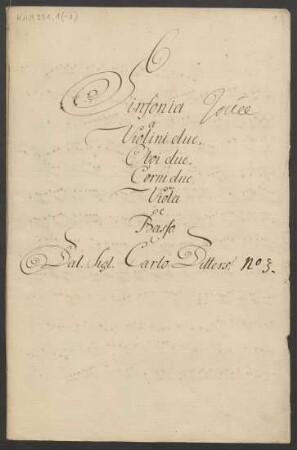 Sinfonia
a
Violini due.
Oboi due.
Corni due
Viola
e
Basso
Dal. Sigl. Carlo Ditters. No 3.